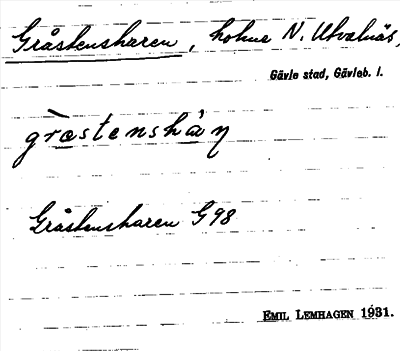 Gråstensharen, holme N. Utvalnäs,
Gävle stad, Gävleb. l.
gråstenshàrη
Gråstensharen G98
EMIL LEMHAGEN 1931.